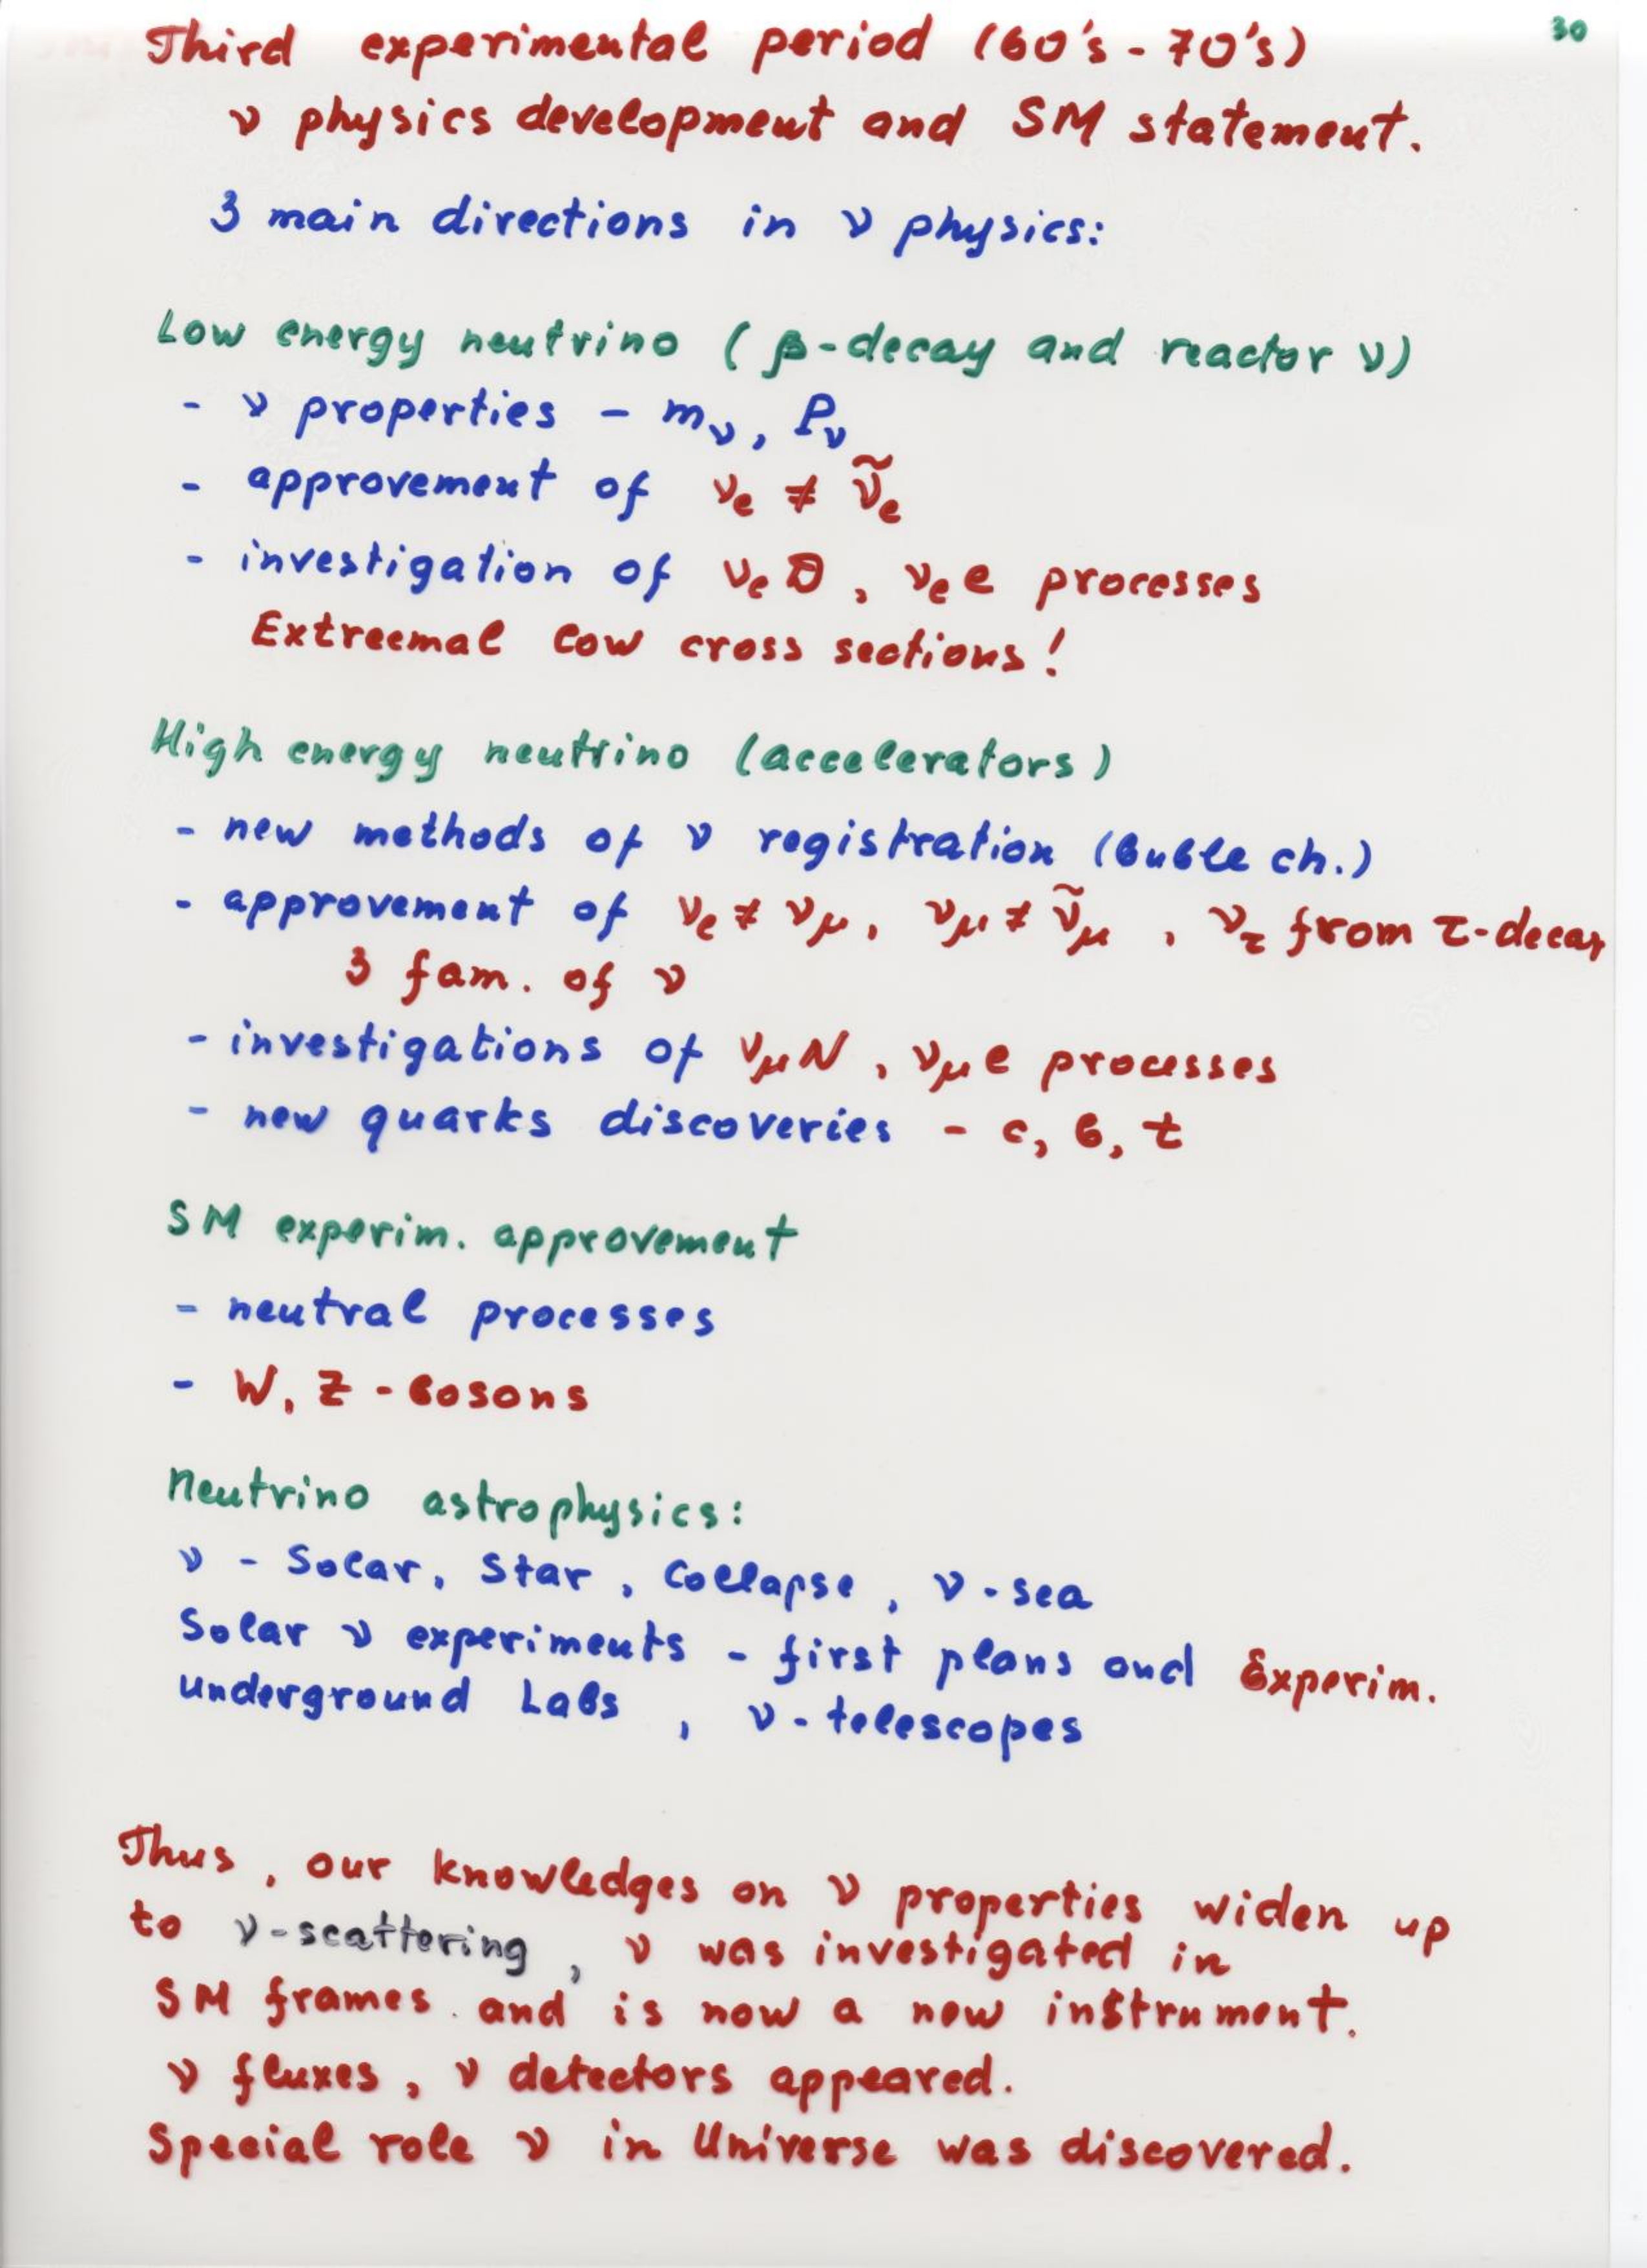 30
Third experimental period (60's - 70's)
ν physics development and SM statement.
3 main directions in ν physics:
Low energy neutrino (β-decay and reactor ν)
- ν properties - mν, Pν
- approvement of νe ≠ ν̃e
- investigation of νe D, νe e processes
Extreemal low cross sections!
High energy neutrino (accelerators)
- new methods of ν registration (Buble ch.)
- approvement of νe ≠ νμ, νμ ≠ ν̃μ, ντ from τ-decay
3 fam. of ν
- investigations of νμ N, νμ e processes
- new quarks discoveries - c, b, t
SM experim. approvement
- neutral processes
- W, Z - bosons
Neutrino astrophysics:
ν - Solar, Star, Collapse, ν-sea
Solar ν experiments - first plans and Experim.
Underground Labs, ν-telescopes
Thus, our knowledges on ν properties widen up
to ν-scattering, ν was investigated in
SM frames and is now a new instrument.
ν fluxes, ν detectors appeared.
Special role ν in Universe was discovered.